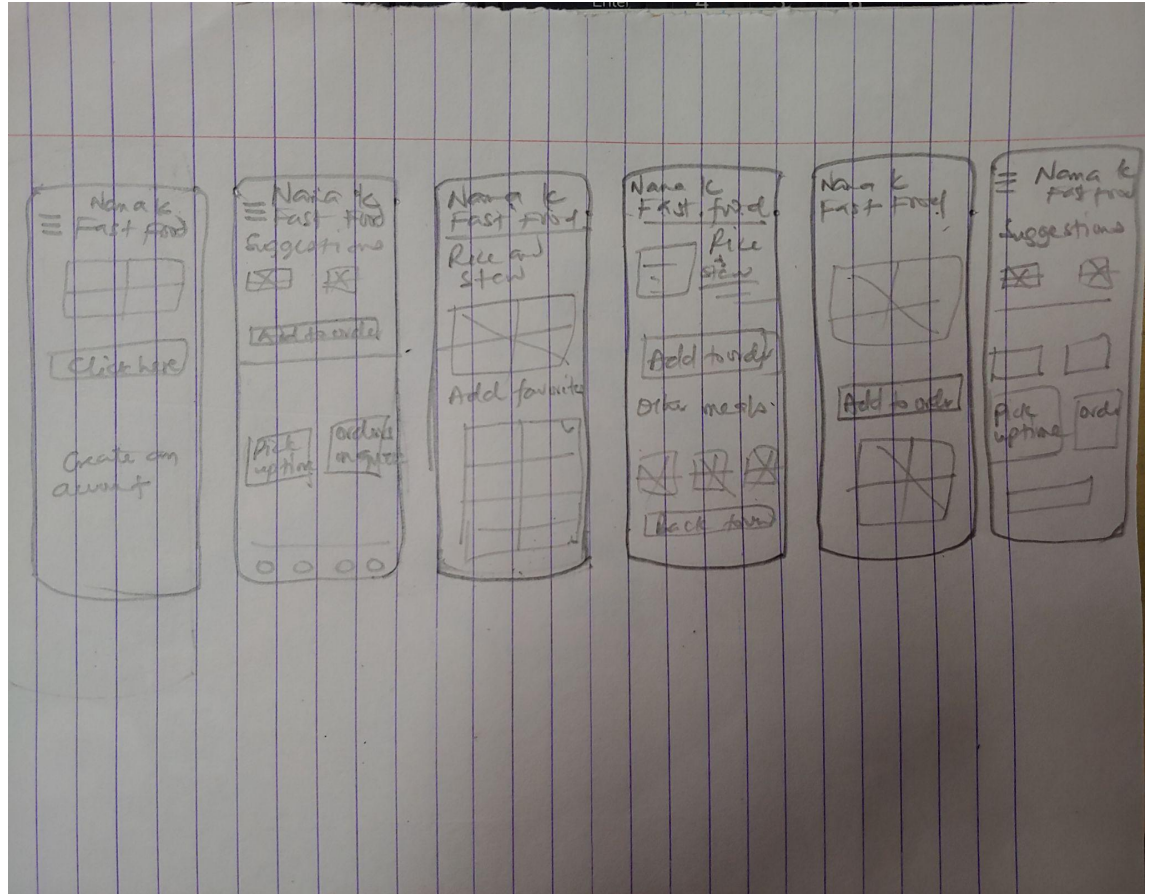 Enter 4 5 6
Nana k
Fast food
Click here
Create an
account
Nana k
Fast food
Suggestions
Add to order
Pick
uptime
Nana k
Fast food
Rice and
stew
Add favorite
Nana k
Fast food
Rice
+
stew
Add to order
Other meals.
Back to
Nana k
Fast Food
Add to order
Nana k
Fast food
Suggestions
Pick
uptime
order